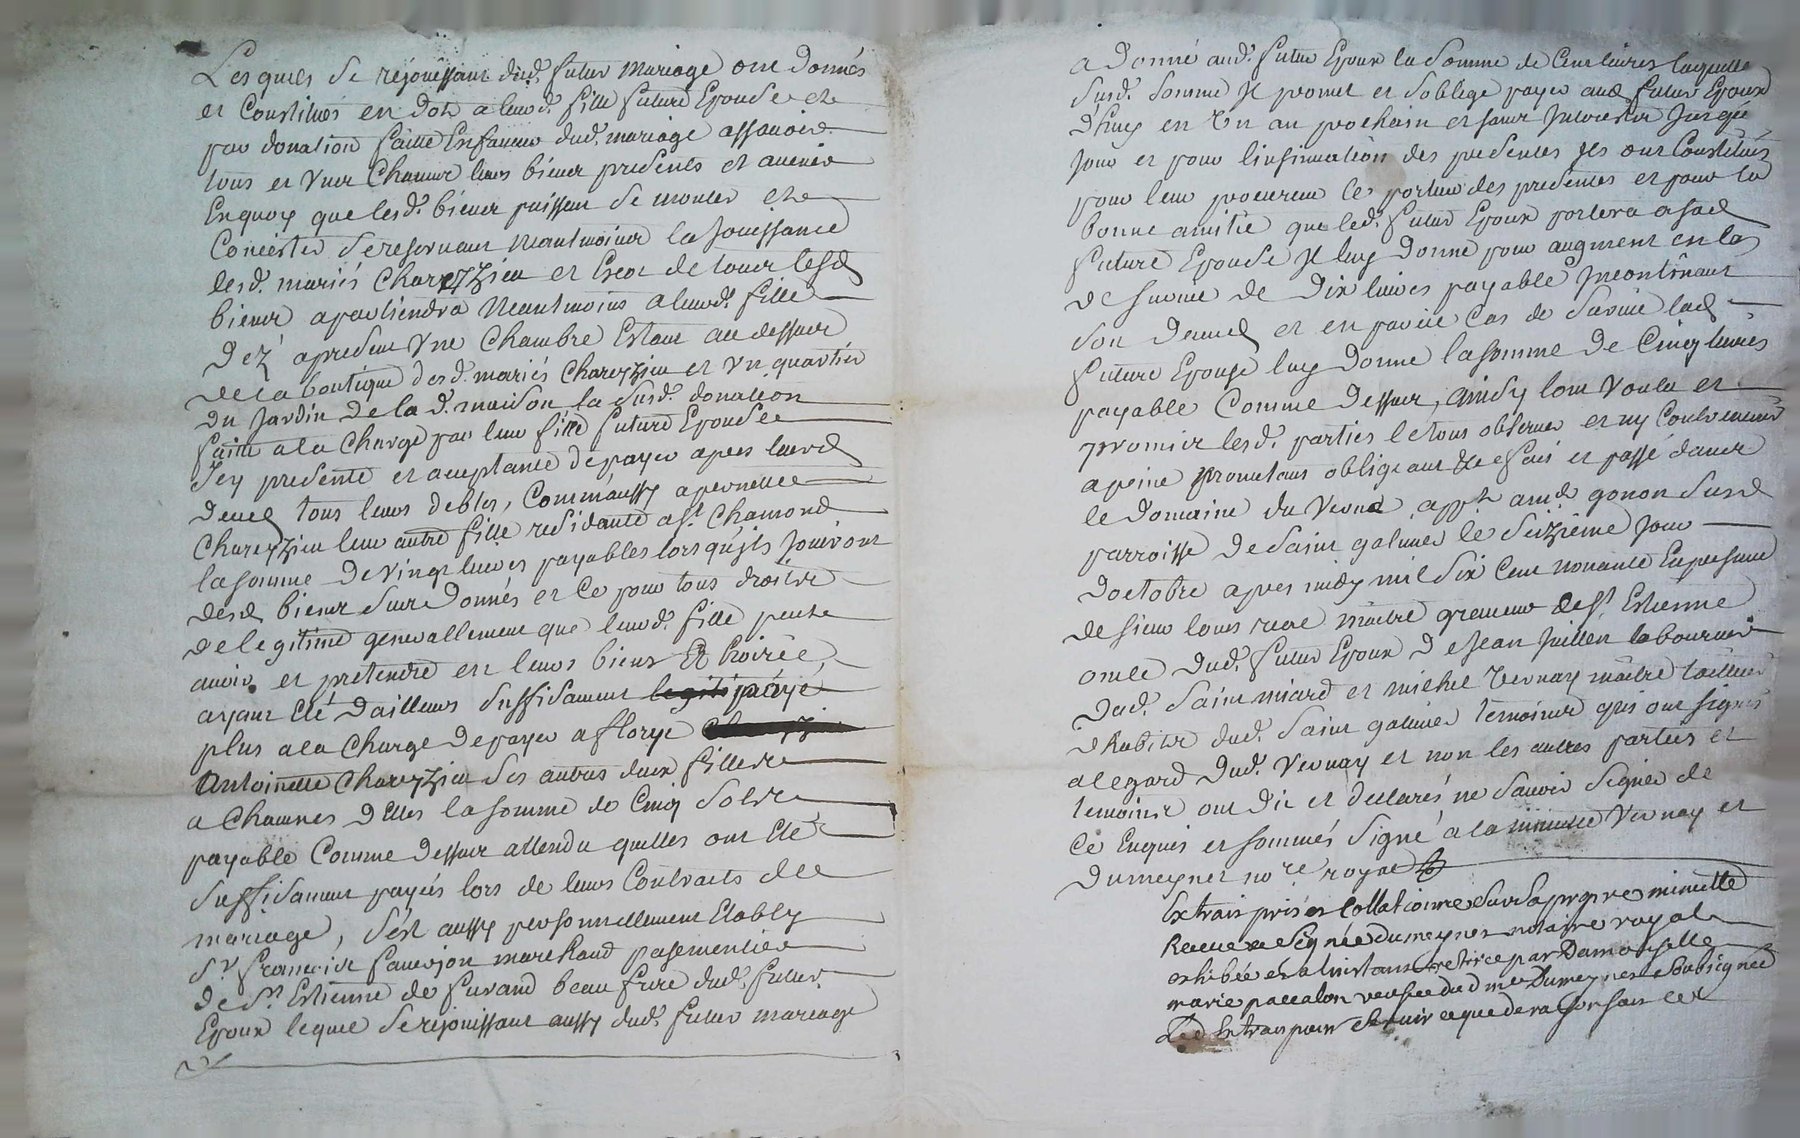 Lesquels se rejouissant dud. futur mariage ont donnés
et Constitués en dot a leurd. fille future Epouse et
par donation faitte En faveur dud. mariage assavoir
tous et Uns Chacuns leurs biens presents et avenir
En quoy que lesd. biens puissent se monter et
Concister se reservant neantmoins la Jouissance
lesd. mariés Chareyzieu et Encor de tous lesd
biens apartiendra neantmoins a leurd. fille
Dez apresent Une Chambre Estant au dessus
de la boutique desd. mariés Chareyzieu et un quartier
du Jardin de la d. maison la susd. donation
faitte a la Charge par leur fille future Epouse
Icy presente et acceptante de payer apres leurd
deced tous leurs debtes, Comm'aussy a pernette
Chareyzieu leur autre fille residante a st. Chamond
la somme de vingt livres payables lors qu'jls Jouiront
desd biens sus Donnés et Ce pour tous droits
de legitime generallement que leurd. fille peut
avoir et pretendre en leurs biens Et hoirie,
ayant Eté d'ailleurs suffisament payé
plus a la Charge de payer a florye
Antoinette Chareyzieu ses autres deux filles
a Chacunes d'Elles la somme de Cinq sols
payable Comme dessus attendu quelles ont Eté
suffisament payés lors de leurs Contracts de
mariage, s'est aussy personnellement Etably
sr. francois marchand pasementier
de st. Estienne de furand beau frere dud. futur
Epoux lequel se rejouissant aussy dud. futur mariage
a Donné aud. futur Epoux la somme de Cent livres laquelle
susd. somme Jl promet et soblige payer aud futur Epoux
d'huy en Un an prochain et sans Interest Jusqu'a
Jour et pour linsinuation des presentes Jls ont Constitués
pour leur procureur le porteur des presentes et pour la
bonne amitié que led. futur Epoux portera a sad
future Epouse Jl luy Donne pour augment en Cas
de survie de Dix livres payable Incontinant
son deced et en pareil Cas de survie lad
future Epouse luy Donne la somme de Cinq livres
payable Comme dessus, ainsy l'ont voulu et
promis lesd. parties le tout observer et ny Contrevenir
a peine promettans obligeant fait et passé dans
le domaine du Verna gonon susd
parroisse de saint galmier le seizieme Jour
d'octobre apres midy mil six Cent nonante En presence
de sieur louis maitre graveur de st. Estienne
oncle dud. futur Epoux de Jean Jullien laboureur
dud. saint miard et michel Vernay maitre tailleur
d'habits dud. saint galmier temoins qui ont signés
a legard dud. Vernay et non les autres parties et
temoins ont dit et declarés ne savoir signer de
Ce Enquis et sommés signé a la minutte Vernay et
Dumeynet nore royal
Extrait pris et Collationné sur sa propre minutte
Receue et signée dumeynet notaire royal
exhibée et a linstant retirée par Damoiselle
marie pacalon veufve dud me Dumeynet soubsignée
Led Extrait pour servir ce que de raison fait ce